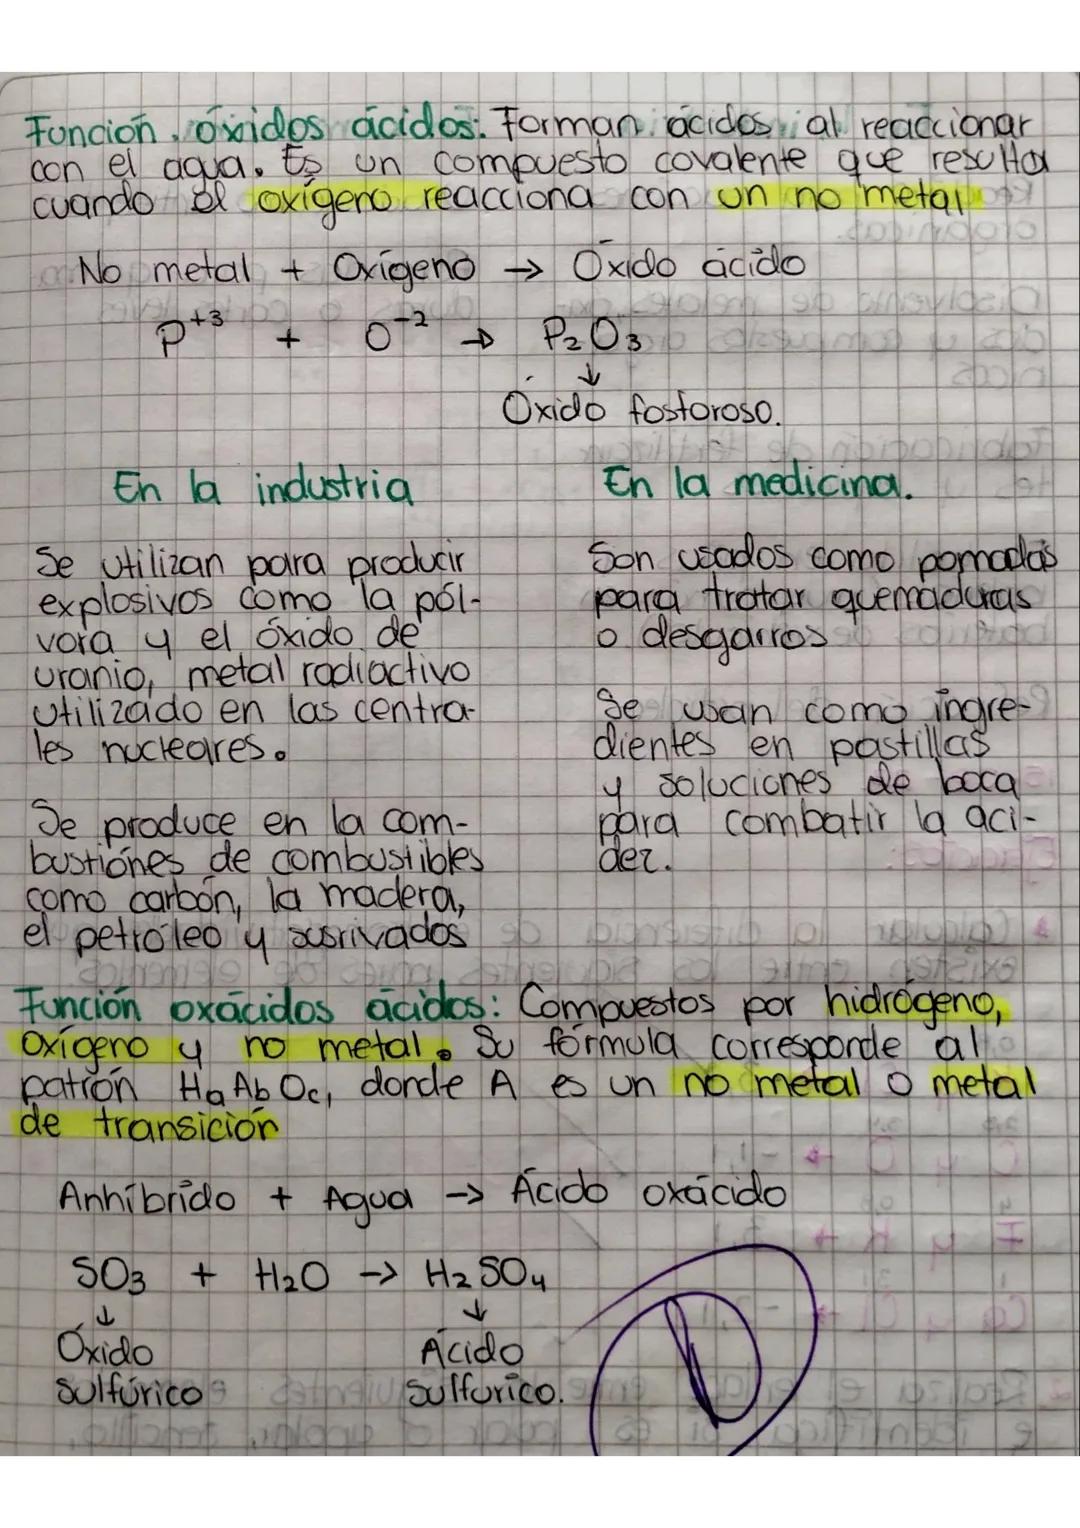 Función óxidos ácidos: Forman ácidos al reaccionar
con el agua. Es un compuesto covalente que resulta
cuando el oxígeno reacciona con un no metal
No metal + Oxígeno → Óxido ácido
P+3 + O-2 → P2O3
↓
Óxido fosforoso.
En la industria
Se utilizan para producir
explosivos como la pól-
vora y el óxido de
uranio, metal radiactivo
utilizado en las centra-
les nucleares.
Se produce en la com-
bustiónes de combustibles
como carbón, la madera,
el petróleo y
En la medicina.
Son usados como pomadas
para tratar quemaduras
o desgarros
Se usan como ingre-
dientes en pastillas
y soluciones de boca
para combatir la aci-
dez.
Función oxácidos ácidos: Compuestos por hidrógeno,
oxígeno y no metal. Su fórmula corresponde al
patrón HaAbOc, donde A es un no metal o metal
de transición
Anhíbrido + Agua → Ácido oxácido
SO3 + H2O → H2SO4
↓ ↓
Óxido Ácido
Sulfúrico Sulfurico.